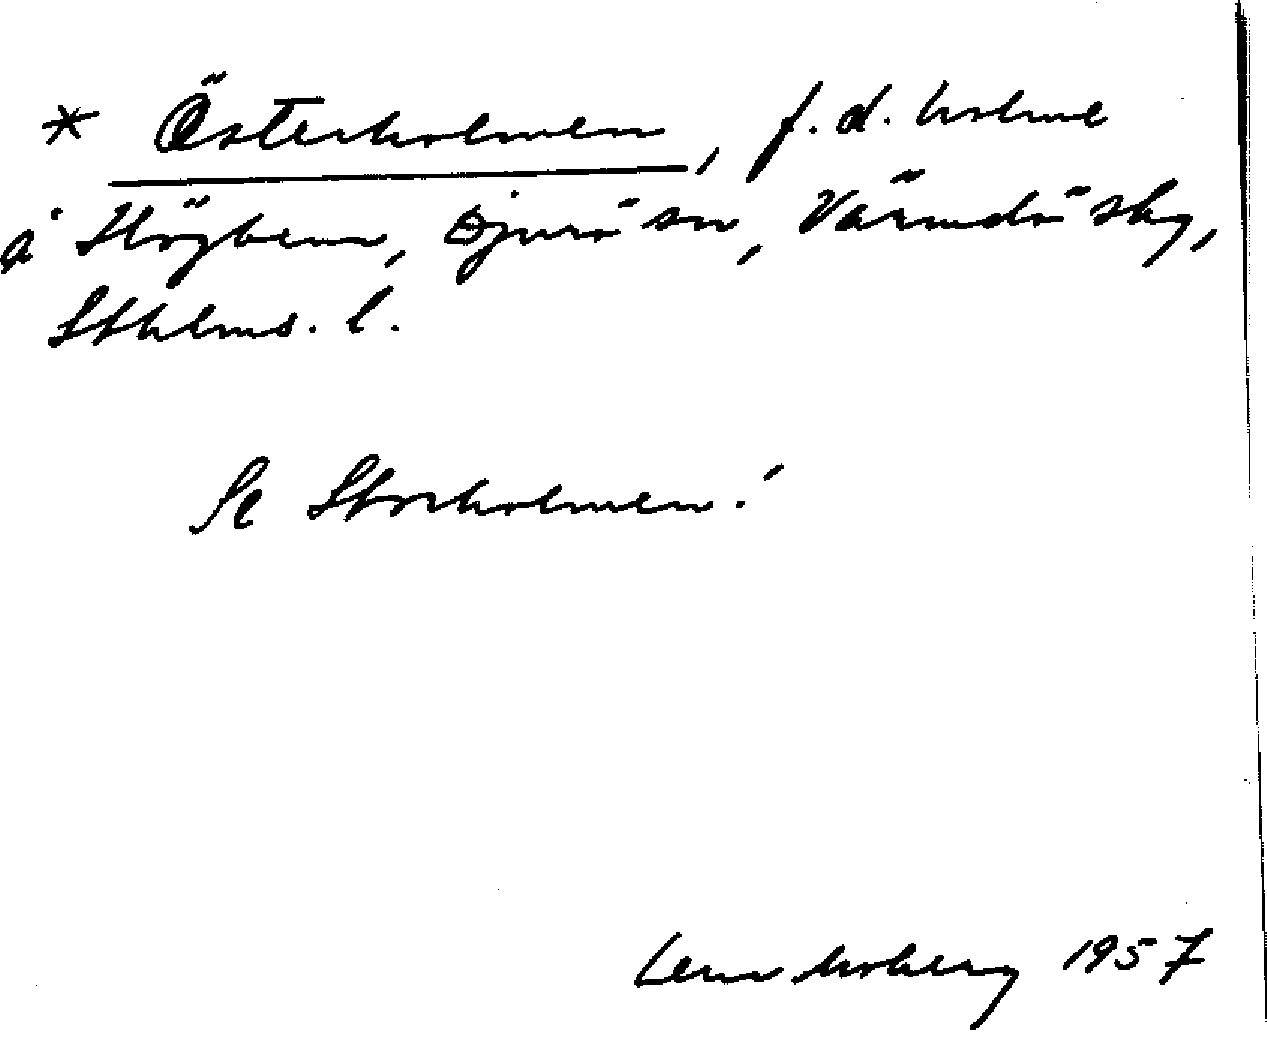 * Österholmen, f.d. holme
å Högbenn, Djurö sn, Värmdö sky,
Sthlms. l.
Se Storholmen!
Lena Moberg 1957